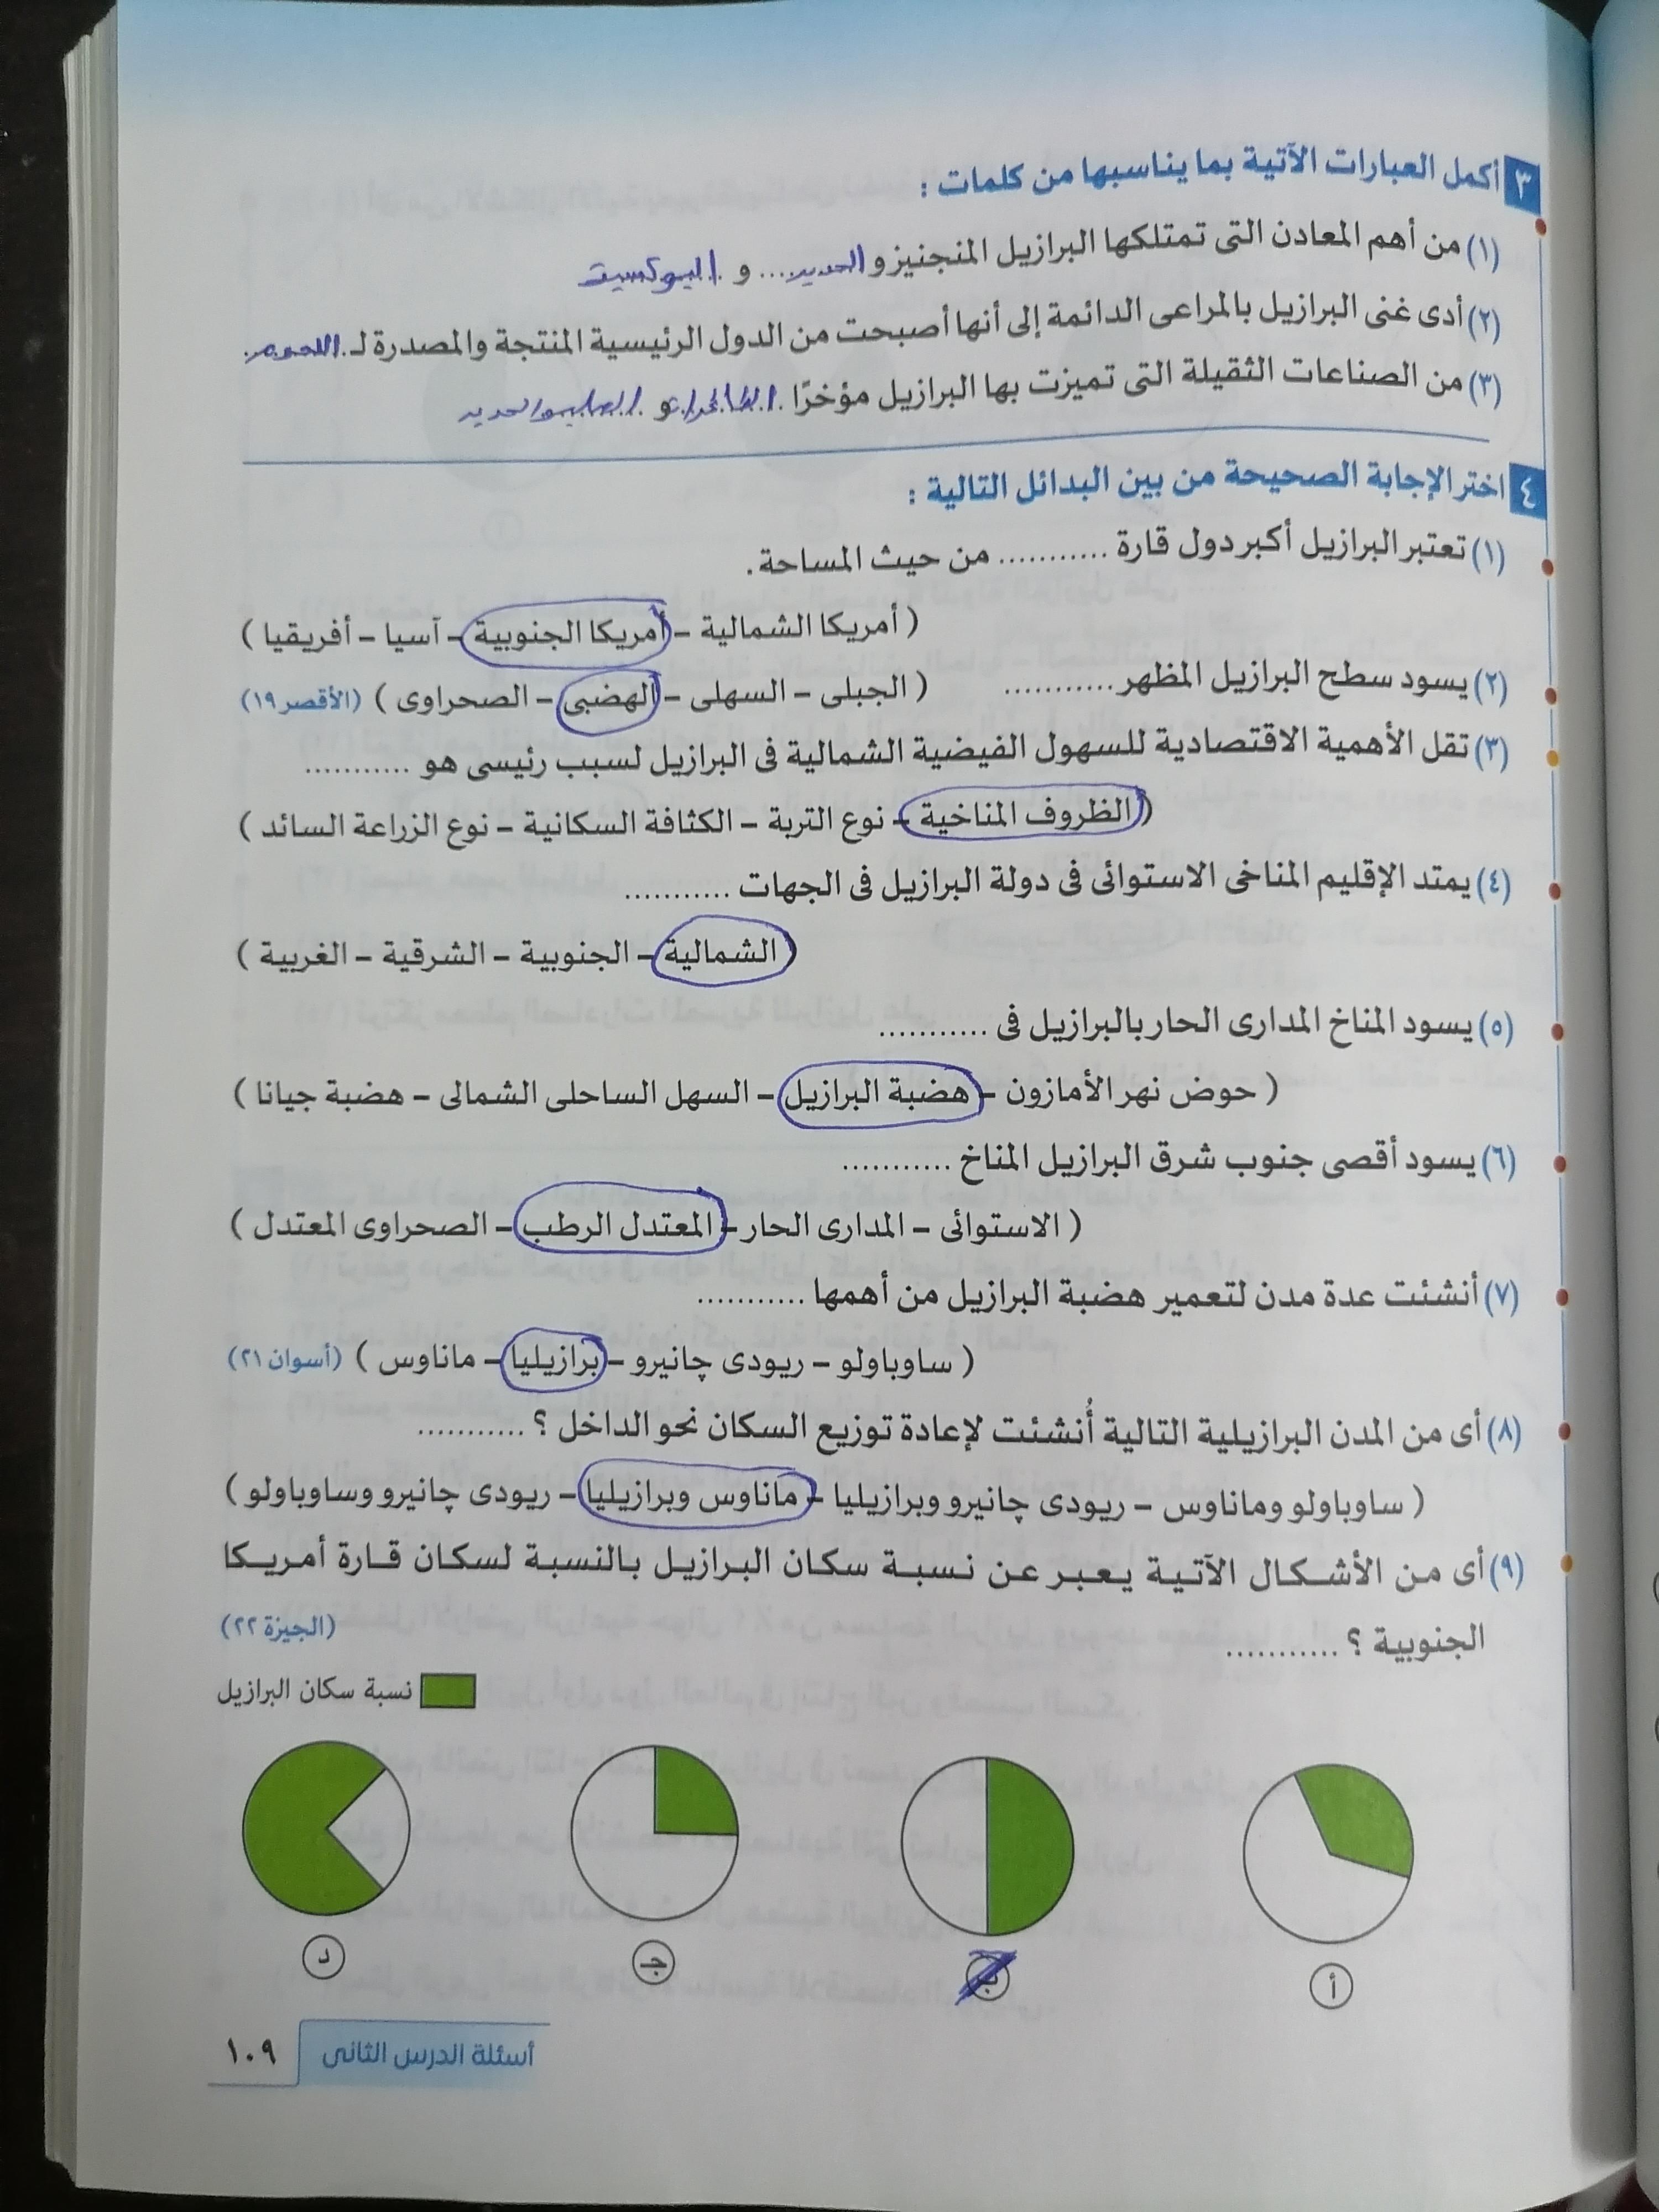 ٣ أكمل العبارات الآتية بما يناسبها من كلمات :
(١) من أهم المعادن التى تمتلكها البرازيل المنجنيز و الحديد ... و البوكسيت
(٢) أدى غنى البرازيل بالمراعى الدائمة إلى أنها أصبحت من الدول الرئيسية المنتجة والمصدرة لـ اللحوم
(٣) من الصناعات الثقيلة التى تميزت بها البرازيل مؤخرًا الطائرات و الصلب والحديد
٤ اختر الإجابة الصحيحة من بين البدائل التالية :
(١) تعتبر البرازيل أكبر دول قارة ........... من حيث المساحة.
( أمريكا الشمالية – أمريكا الجنوبية – آسيا – أفريقيا )
(٢) يسود سطح البرازيل المظهر ........... ( الجبلى – السهلى – الهضبى – الصحراوى ) (الأقصر ١٩)
(٣) تقل الأهمية الاقتصادية للسهول الفيضية الشمالية فى البرازيل لسبب رئيسى هو ...........
( الظروف المناخية – نوع التربة – الكثافة السكانية – نوع الزراعة السائد )
(٤) يمتد الإقليم المناخى الاستوائى فى دولة البرازيل فى الجهات ...........
( الشمالية – الجنوبية – الشرقية – الغربية )
(٥) يسود المناخ المدارى الحار بالبرازيل فى ...........
( حوض نهر الأمازون – هضبة البرازيل – السهل الساحلى الشمالى – هضبة جيانا )
(٦) يسود أقصى جنوب شرق البرازيل المناخ ...........
( الاستوائى – المدارى الحار – المعتدل الرطب – الصحراوى المعتدل )
(٧) أنشئت عدة مدن لتعمير هضبة البرازيل من أهمها ...........
( ساوباولو – ريودى چانيرو – برازيليا – ماناوس ) (أسوان ٢١)
(٨) أى من المدن البرازيلية التالية أُنشئت لإعادة توزيع السكان نحو الداخل ؟ ...........
( ساوباولو وماناوس – ريودى چانيرو وبرازيليا – ماناوس وبرازيليا – ريودى چانيرو وساوباولو )
(٩) أى من الأشكال الآتية يعبر عن نسبة سكان البرازيل بالنسبة لسكان قارة أمريكا
الجنوبية ؟ ........... (الجيزة ٢٢)
نسبة سكان البرازيل
أ ب جـ د
أسئلة الدرس الثانى ١٠٩